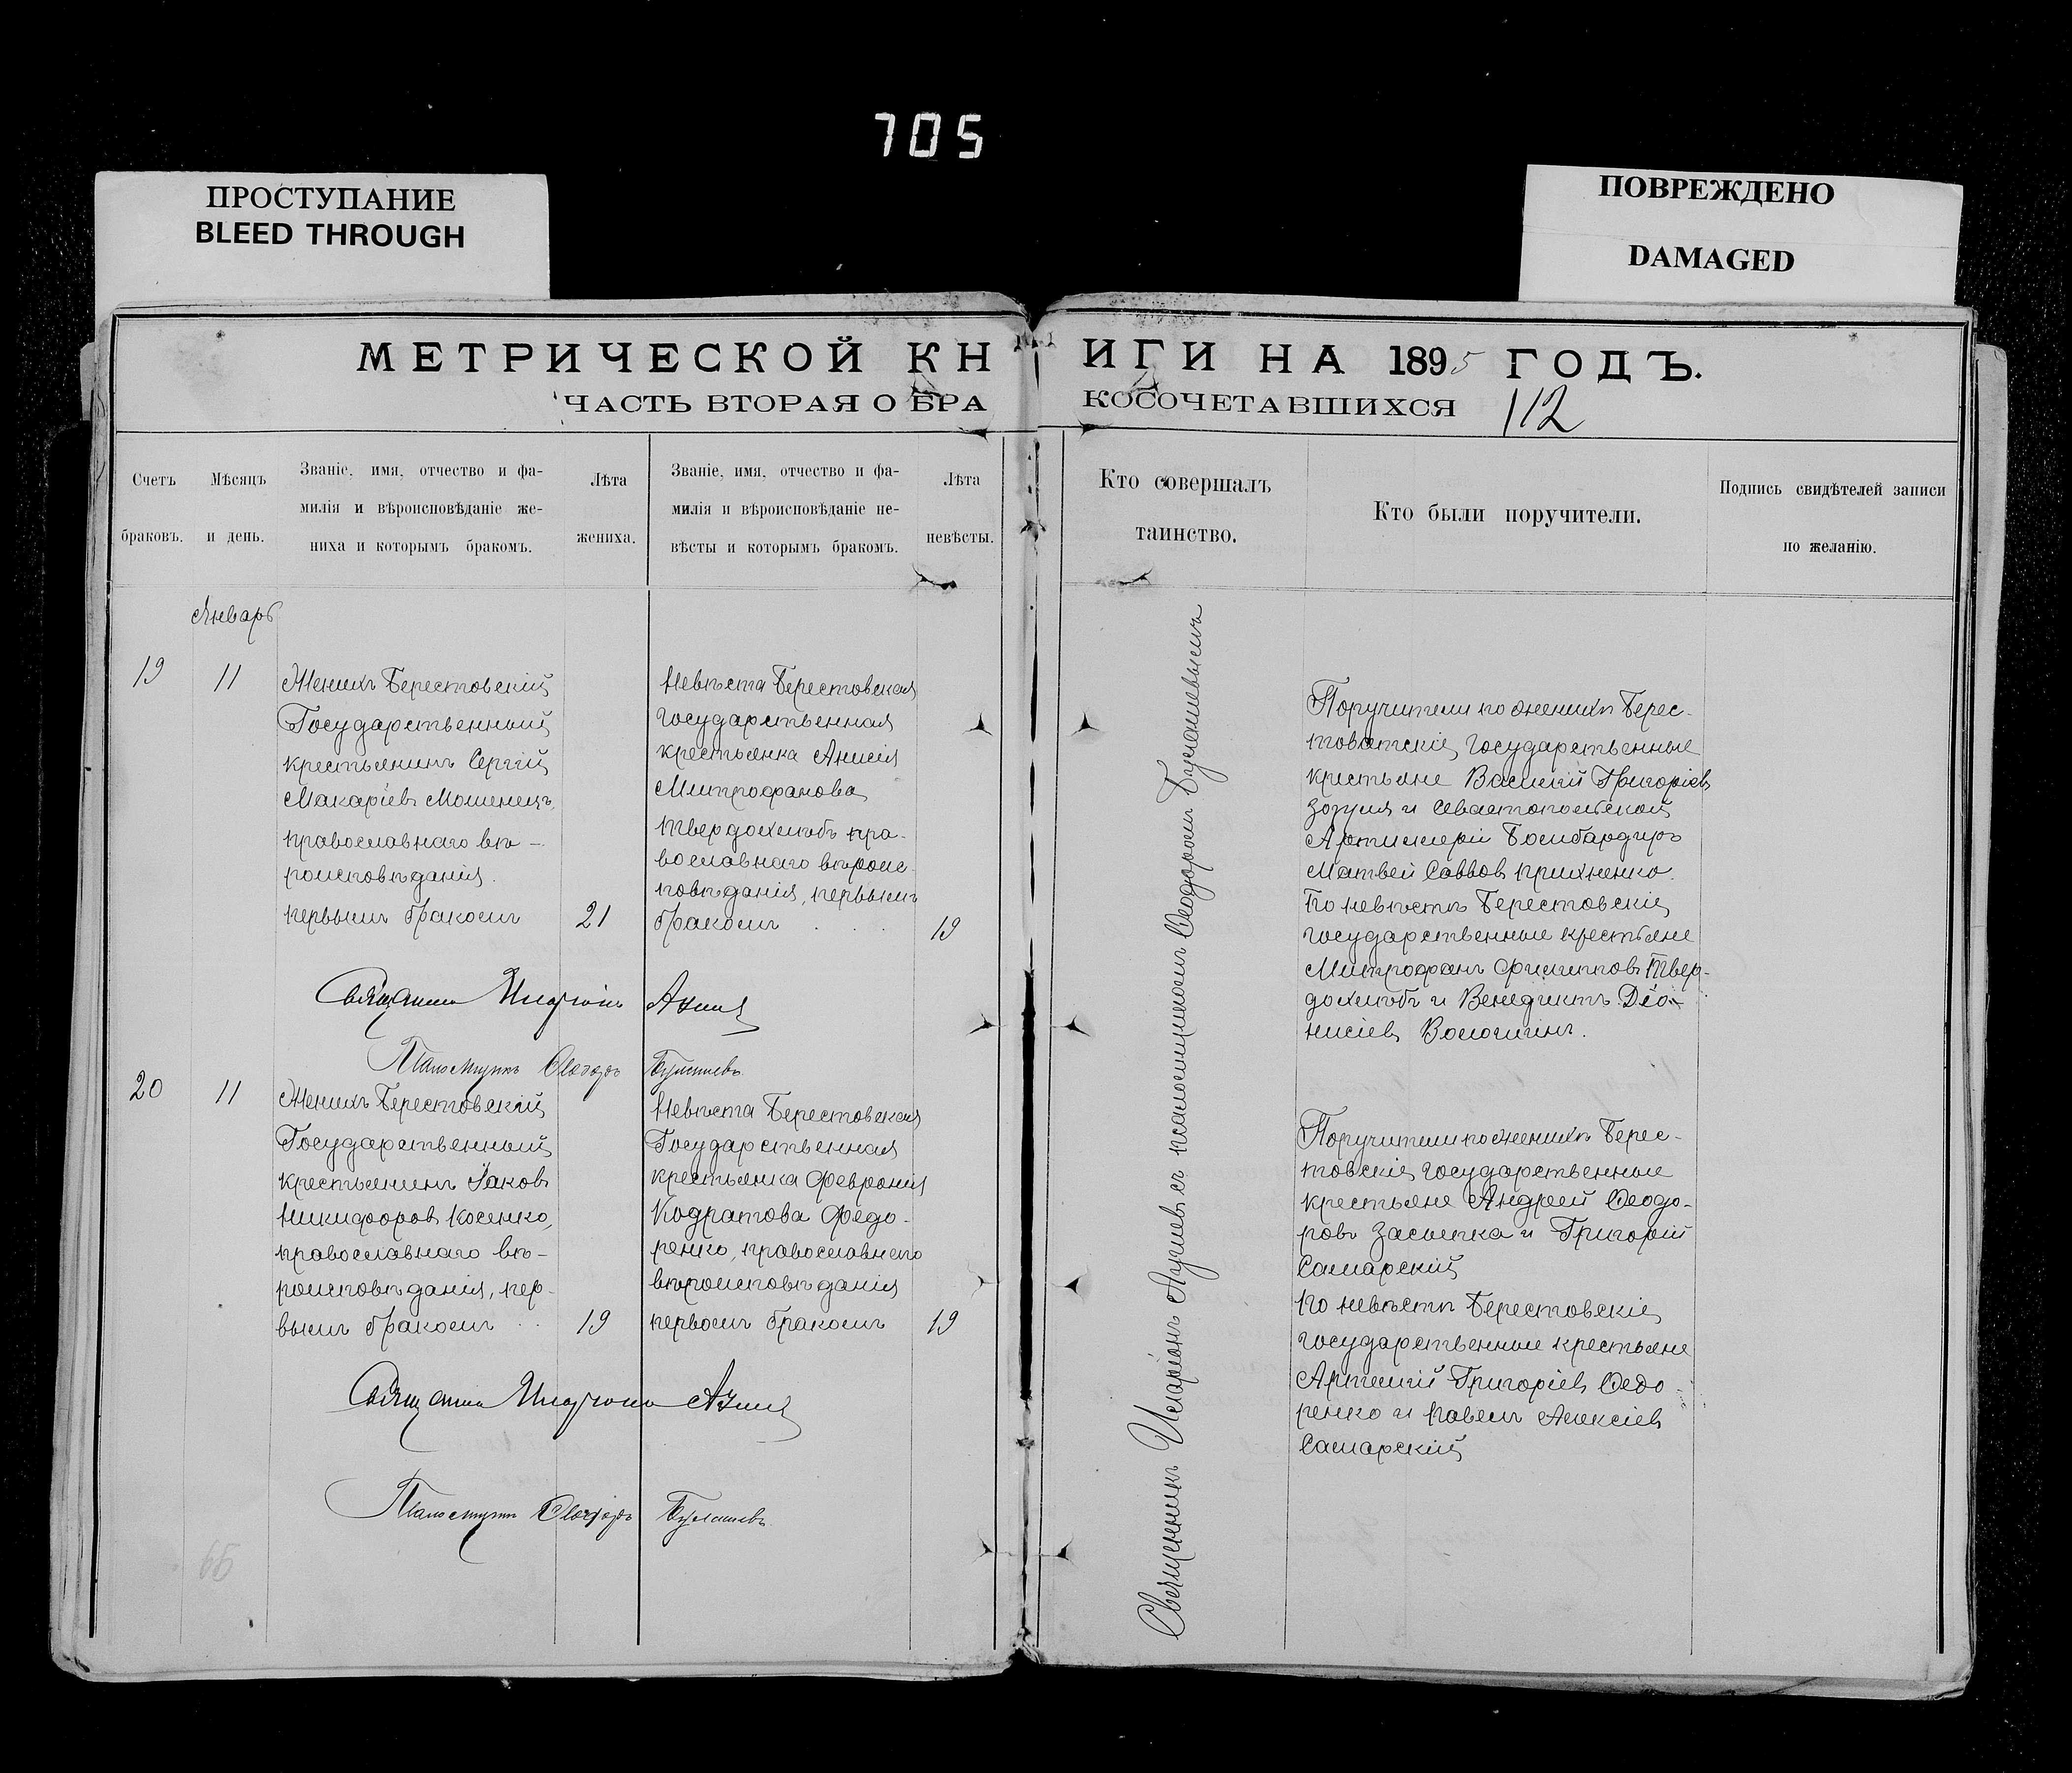 705
ПРОСТУПАНИЕ
BLEED THROUGH
ПОВРЕЖДЕНО
DAMAGED
МЕТРИЧЕСКОЙ КНИГИ НА 1895 ГОДЪ.
ЧАСТЬ ВТОРАЯ О БРАКОСОЧЕТАВШИХСЯ 112
Счетъ
браковъ.
Мѣсяцъ
и день.
Званіе, имя, отчество и фа-
милія и вѣроисповѣданіе же-
ниха и которымъ бракомъ.
Лѣта
жениха.
Званіе, имя, отчество и фа-
милія и вѣроисповѣданіе не-
вѣсты и которымъ бракомъ.
Лѣта
невѣсты.
Кто совершалъ
таинство.
Кто были поручители.
Подпись свидѣтелей записи
по желанію.
Январь
19
11
Женихъ Берестовскій
Государственный
крестьянинъ Сергій
Макаріевъ Мошенецъ,
православнаго вѣ-
роисповѣданія.
первымъ бракомъ
21
Невѣста Берестовская
государственная
крестьянка Анисія
Митрофанова
Твердохлѣбъ пра-
вославнаго вѣроис-
повѣданія, первымъ
бракомъ
19
Священникъ Иларіонъ
Псаломщикъ Ѳеодоръ
Поручители по женихѣ Берес-
товатскіе государственные
крестьяне Василій Григоріевъ
Зозуля и Севастопольской
Артиллеріи Бомбардиръ
Матвей Саввовъ
По невѣстѣ Берестовскіе
государственные крестьяне
Митрофанъ Филиповъ Твер-
дохлѣбъ и Венедиктъ Діо-
нисіевъ Вологинъ.
20
11
Женихъ Берестовскій
Государственный
крестьянинъ Іаковъ
Никифоровъ Косенко,
православнаго вѣ-
роисповѣданія, пер-
вымъ бракомъ
19
Невѣста Берестовская
Государственная
крестьянка Феврония
Кодратова Федо-
ренко, православнаго
вѣроисповѣданія
первымъ бракомъ
19
Священникъ Иларіонъ
Псаломщикъ Ѳеодоръ
Поручители по женихѣ Берес-
товскіе государственные
крестьяне Андрей Ѳеодо-
ровъ Засыпка и Григорій
Самарскій
По невѣстѣ Берестовскіе
государственные крестьяне
Артемій Григоріевъ Ѳедо-
ренко и Павелъ Алексіевъ
Самарскій
Священникъ Иларіонъ съ псаломщикомъ Ѳеодоромъ